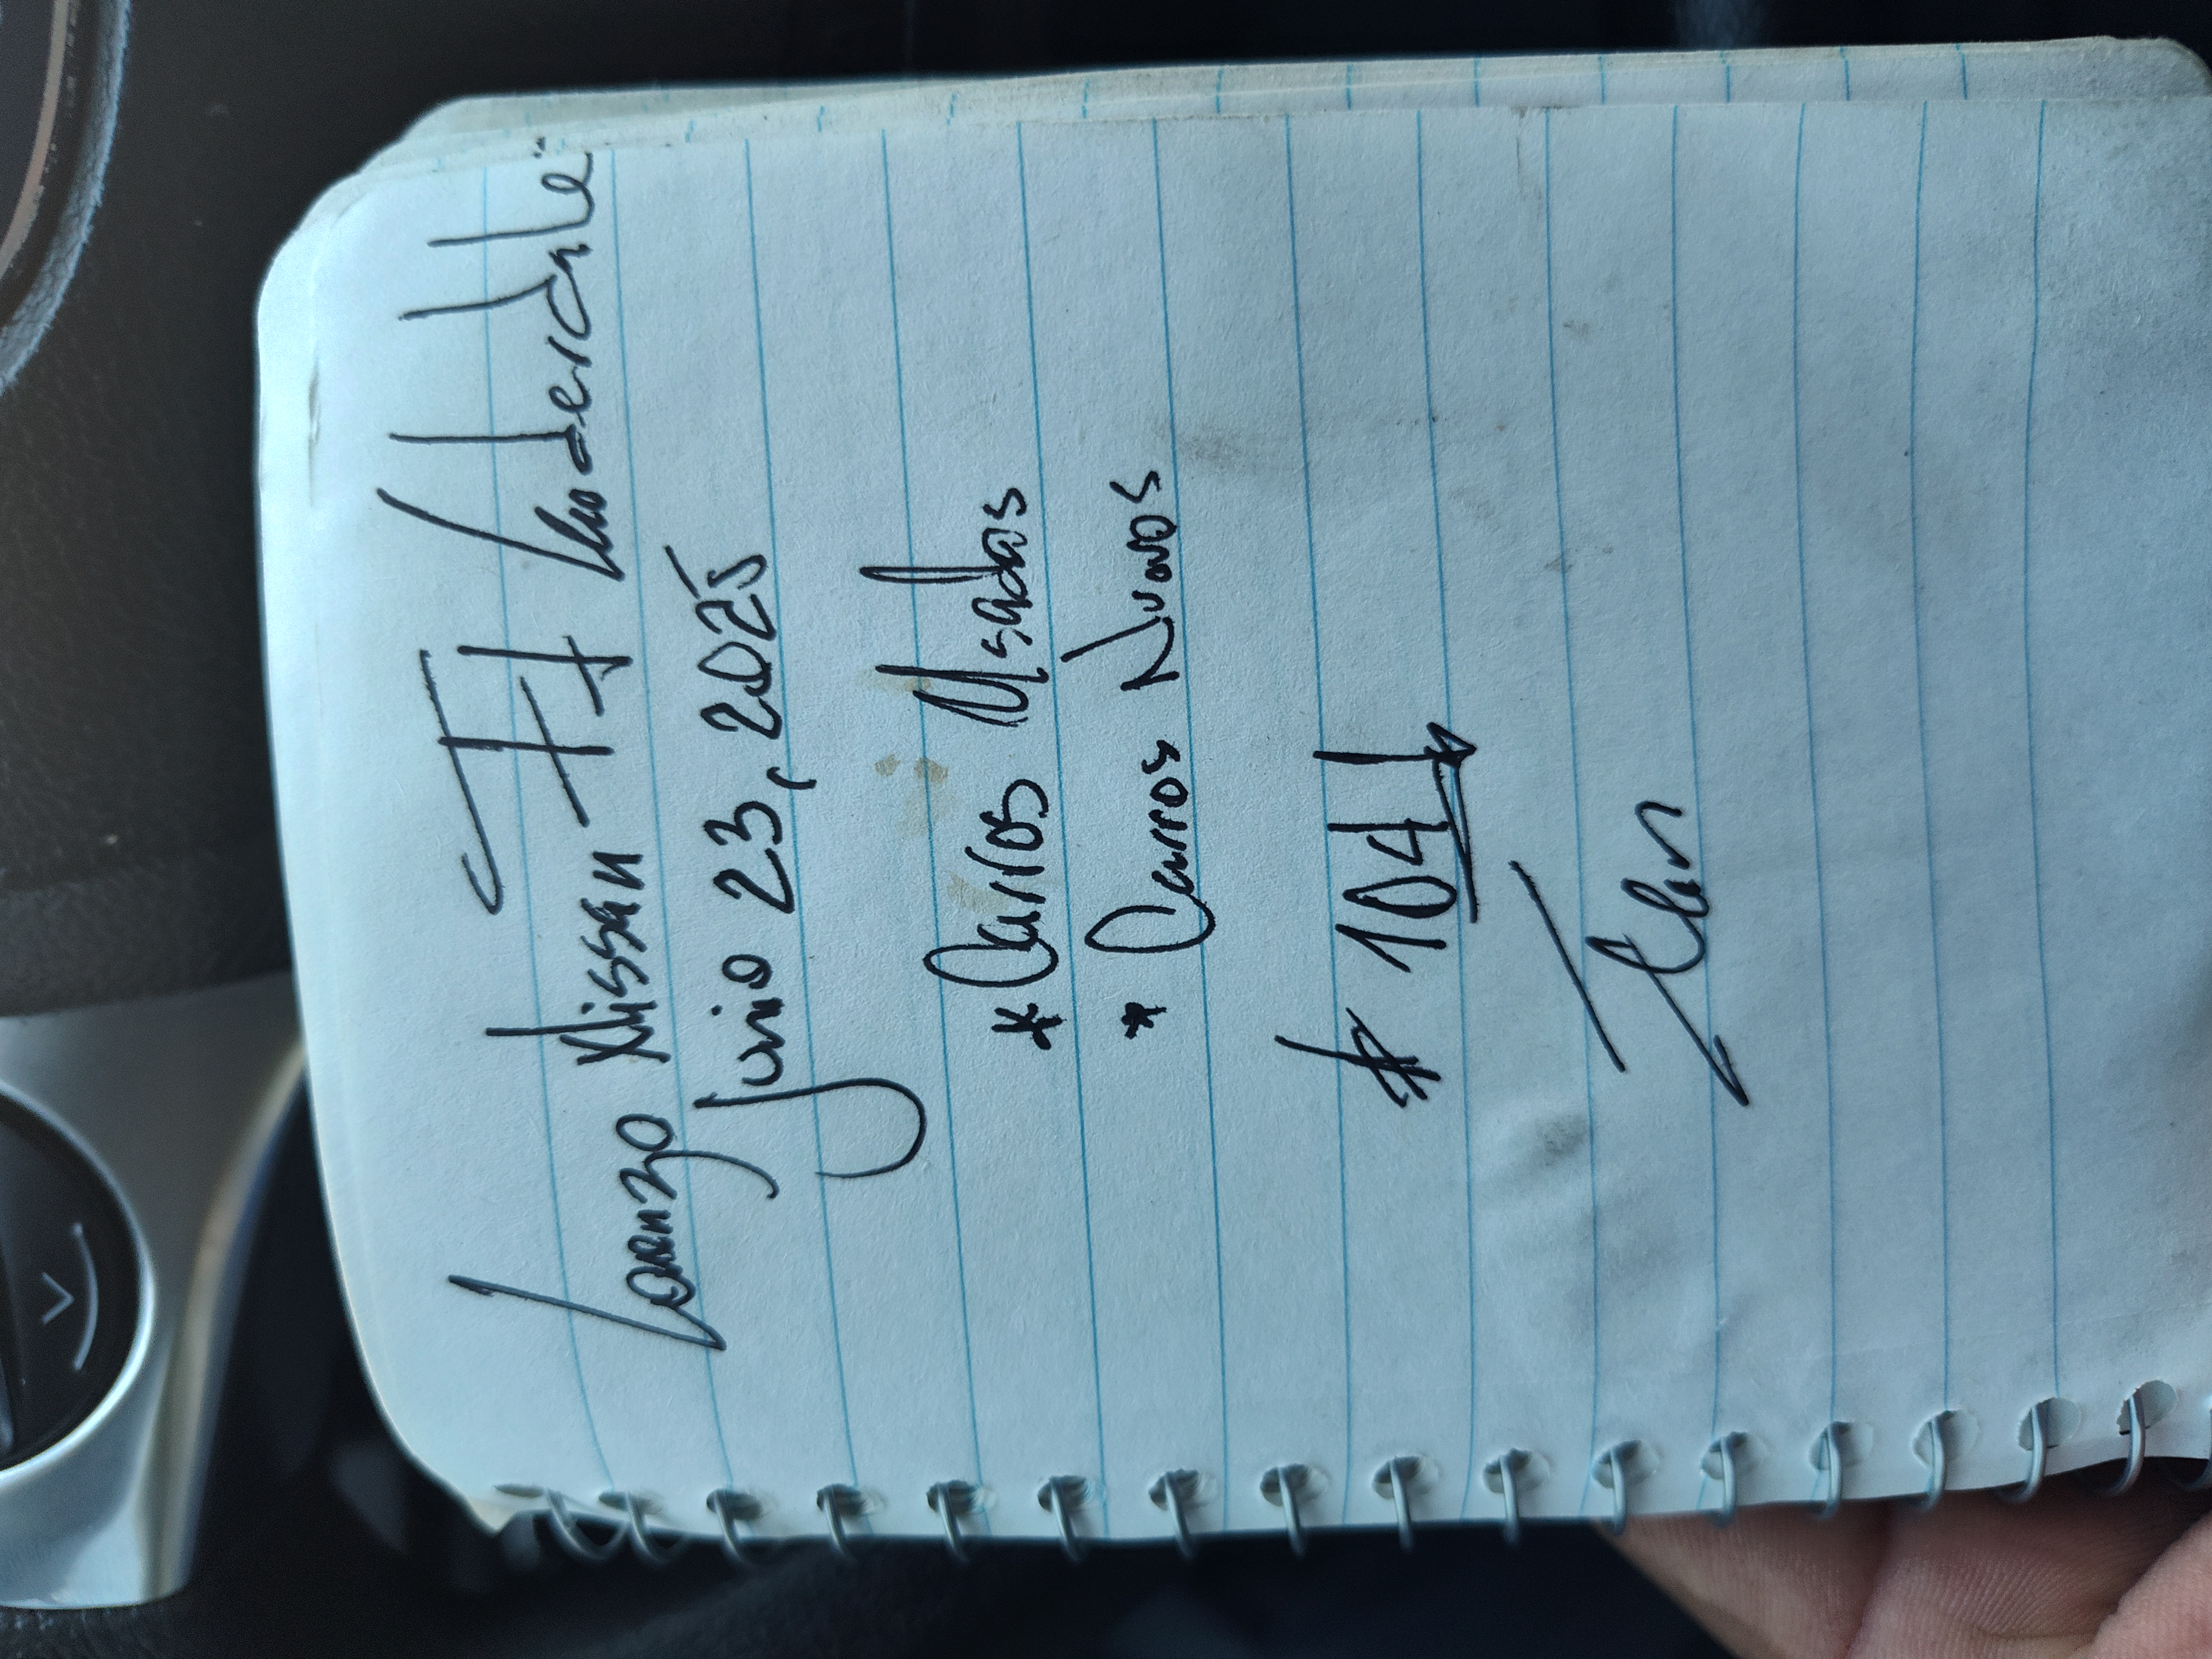 Lorenzo Nissan Ft Lauderdale
Junio 23, 2025
*Carros Usados
* Carros Nuevos
# 1041